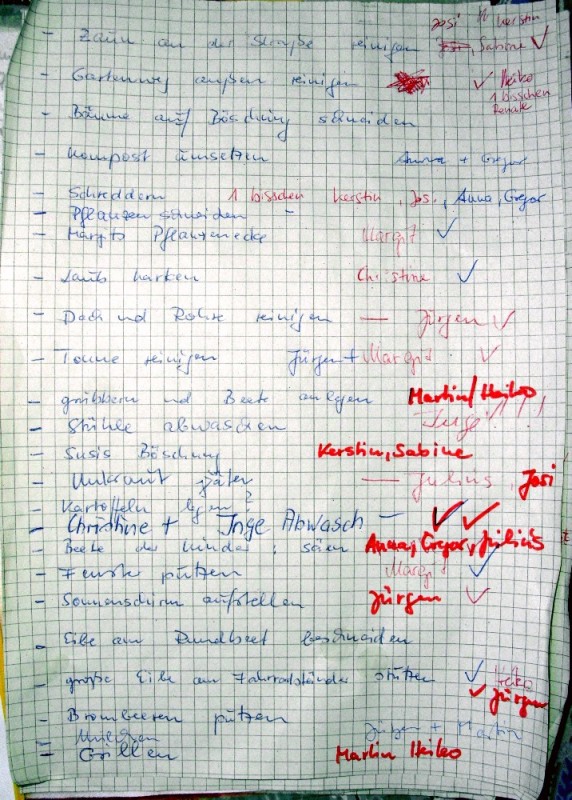 Josi Kerstin
- Zaun an der Straße reinigen Sabine ✓
- Gartenweg außen reinigen ✓ Heiko
1 bisschen
Renate
- Bäume auf Böschung schneiden
- Kompost umsetzen Anna + Gregor
- Schreddern 1 bisschen Kerstin, Josi, Anna, Gregor
- Pflanzen schneiden -
- Margits Pflanzenecke Margit ✓
- Laub harken Christine ✓
- Dach und Rohre reinigen — Jürgen ✓
- Tonne reinigen Jürgen + Margit ✓
- grubbern und Beete anlegen Martin/Heiko
- Stühle abwaschen Inge!!!
- Susis Böschung Kerstin, Sabine
- Unkraut jäten — Julius, Josi
- Kartoffeln legen?
- Christine + Inge Abwasch - ✓ ✓
- Beete der Kinder; säen Anna, Gregor, Julius
- Fenster putzen Margit ✓
- Sonnenschirm aufstellen Jürgen ✓
- Eibe am Rundbeet beschneiden
- große Eibe am Fahrradständer stutzen ✓ Heiko
✓ Jürgen
- Brombeeren putzen
- Mulchen Jürgen + Martin
- Grillen Martin Heiko